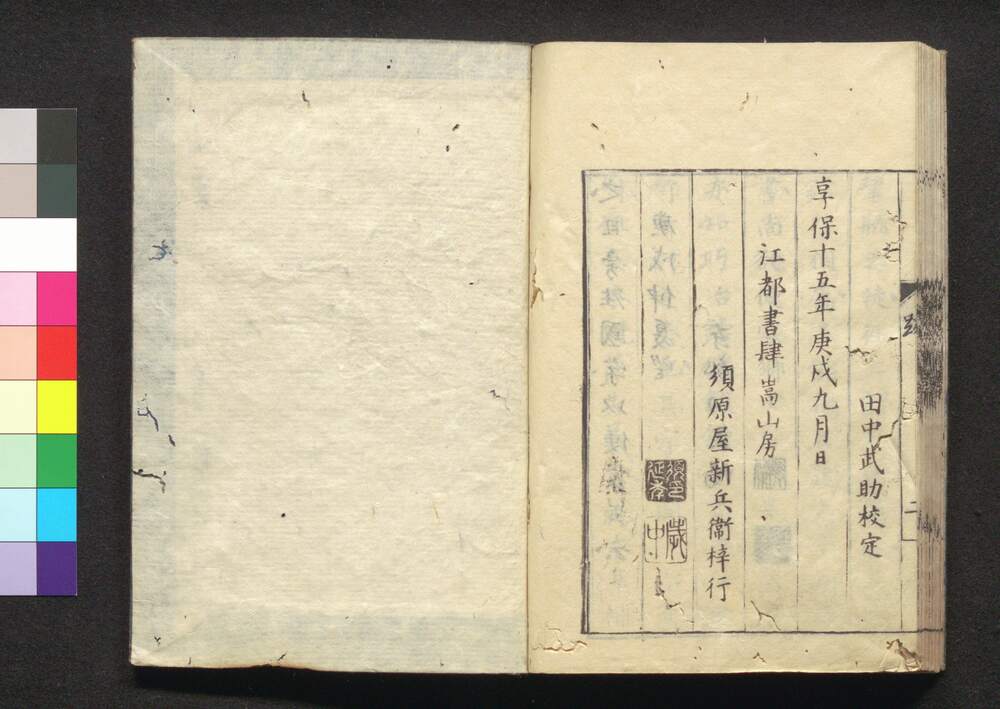 跋
二
田中武助校定
享保十五年庚戌九月日
江都書肆嵩山房
須原屋新兵衞梓行